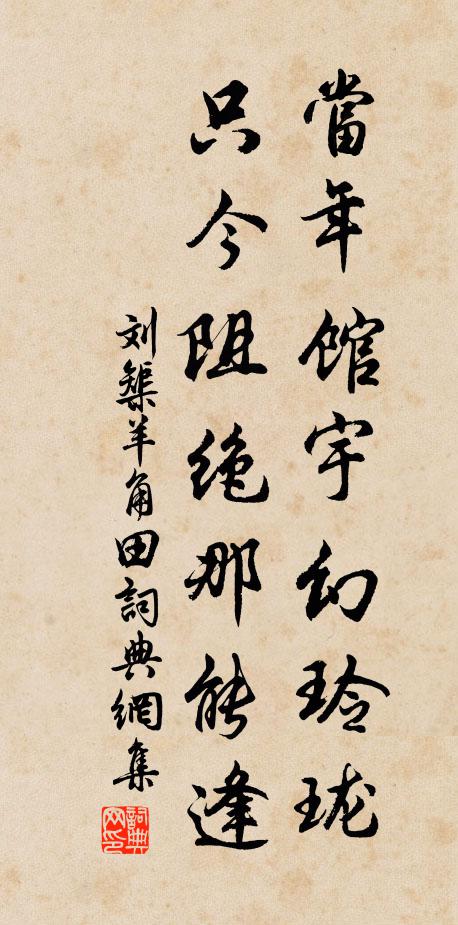 當年館宇幻玲瓏
只今阻絶那能逢
刘榘羊角田詞典網集
詞典网印